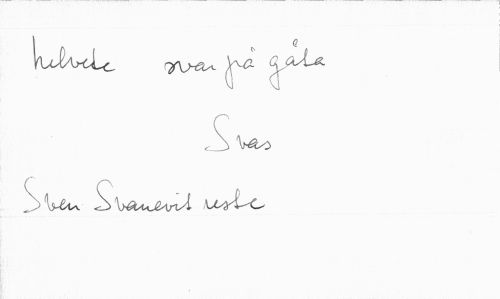 helvete svar på gåta
Svas
Sven Svanevit reste